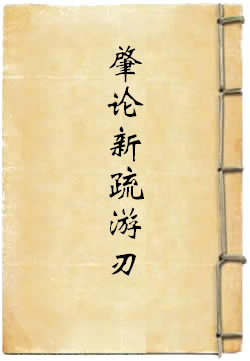 肇论新疏游刃